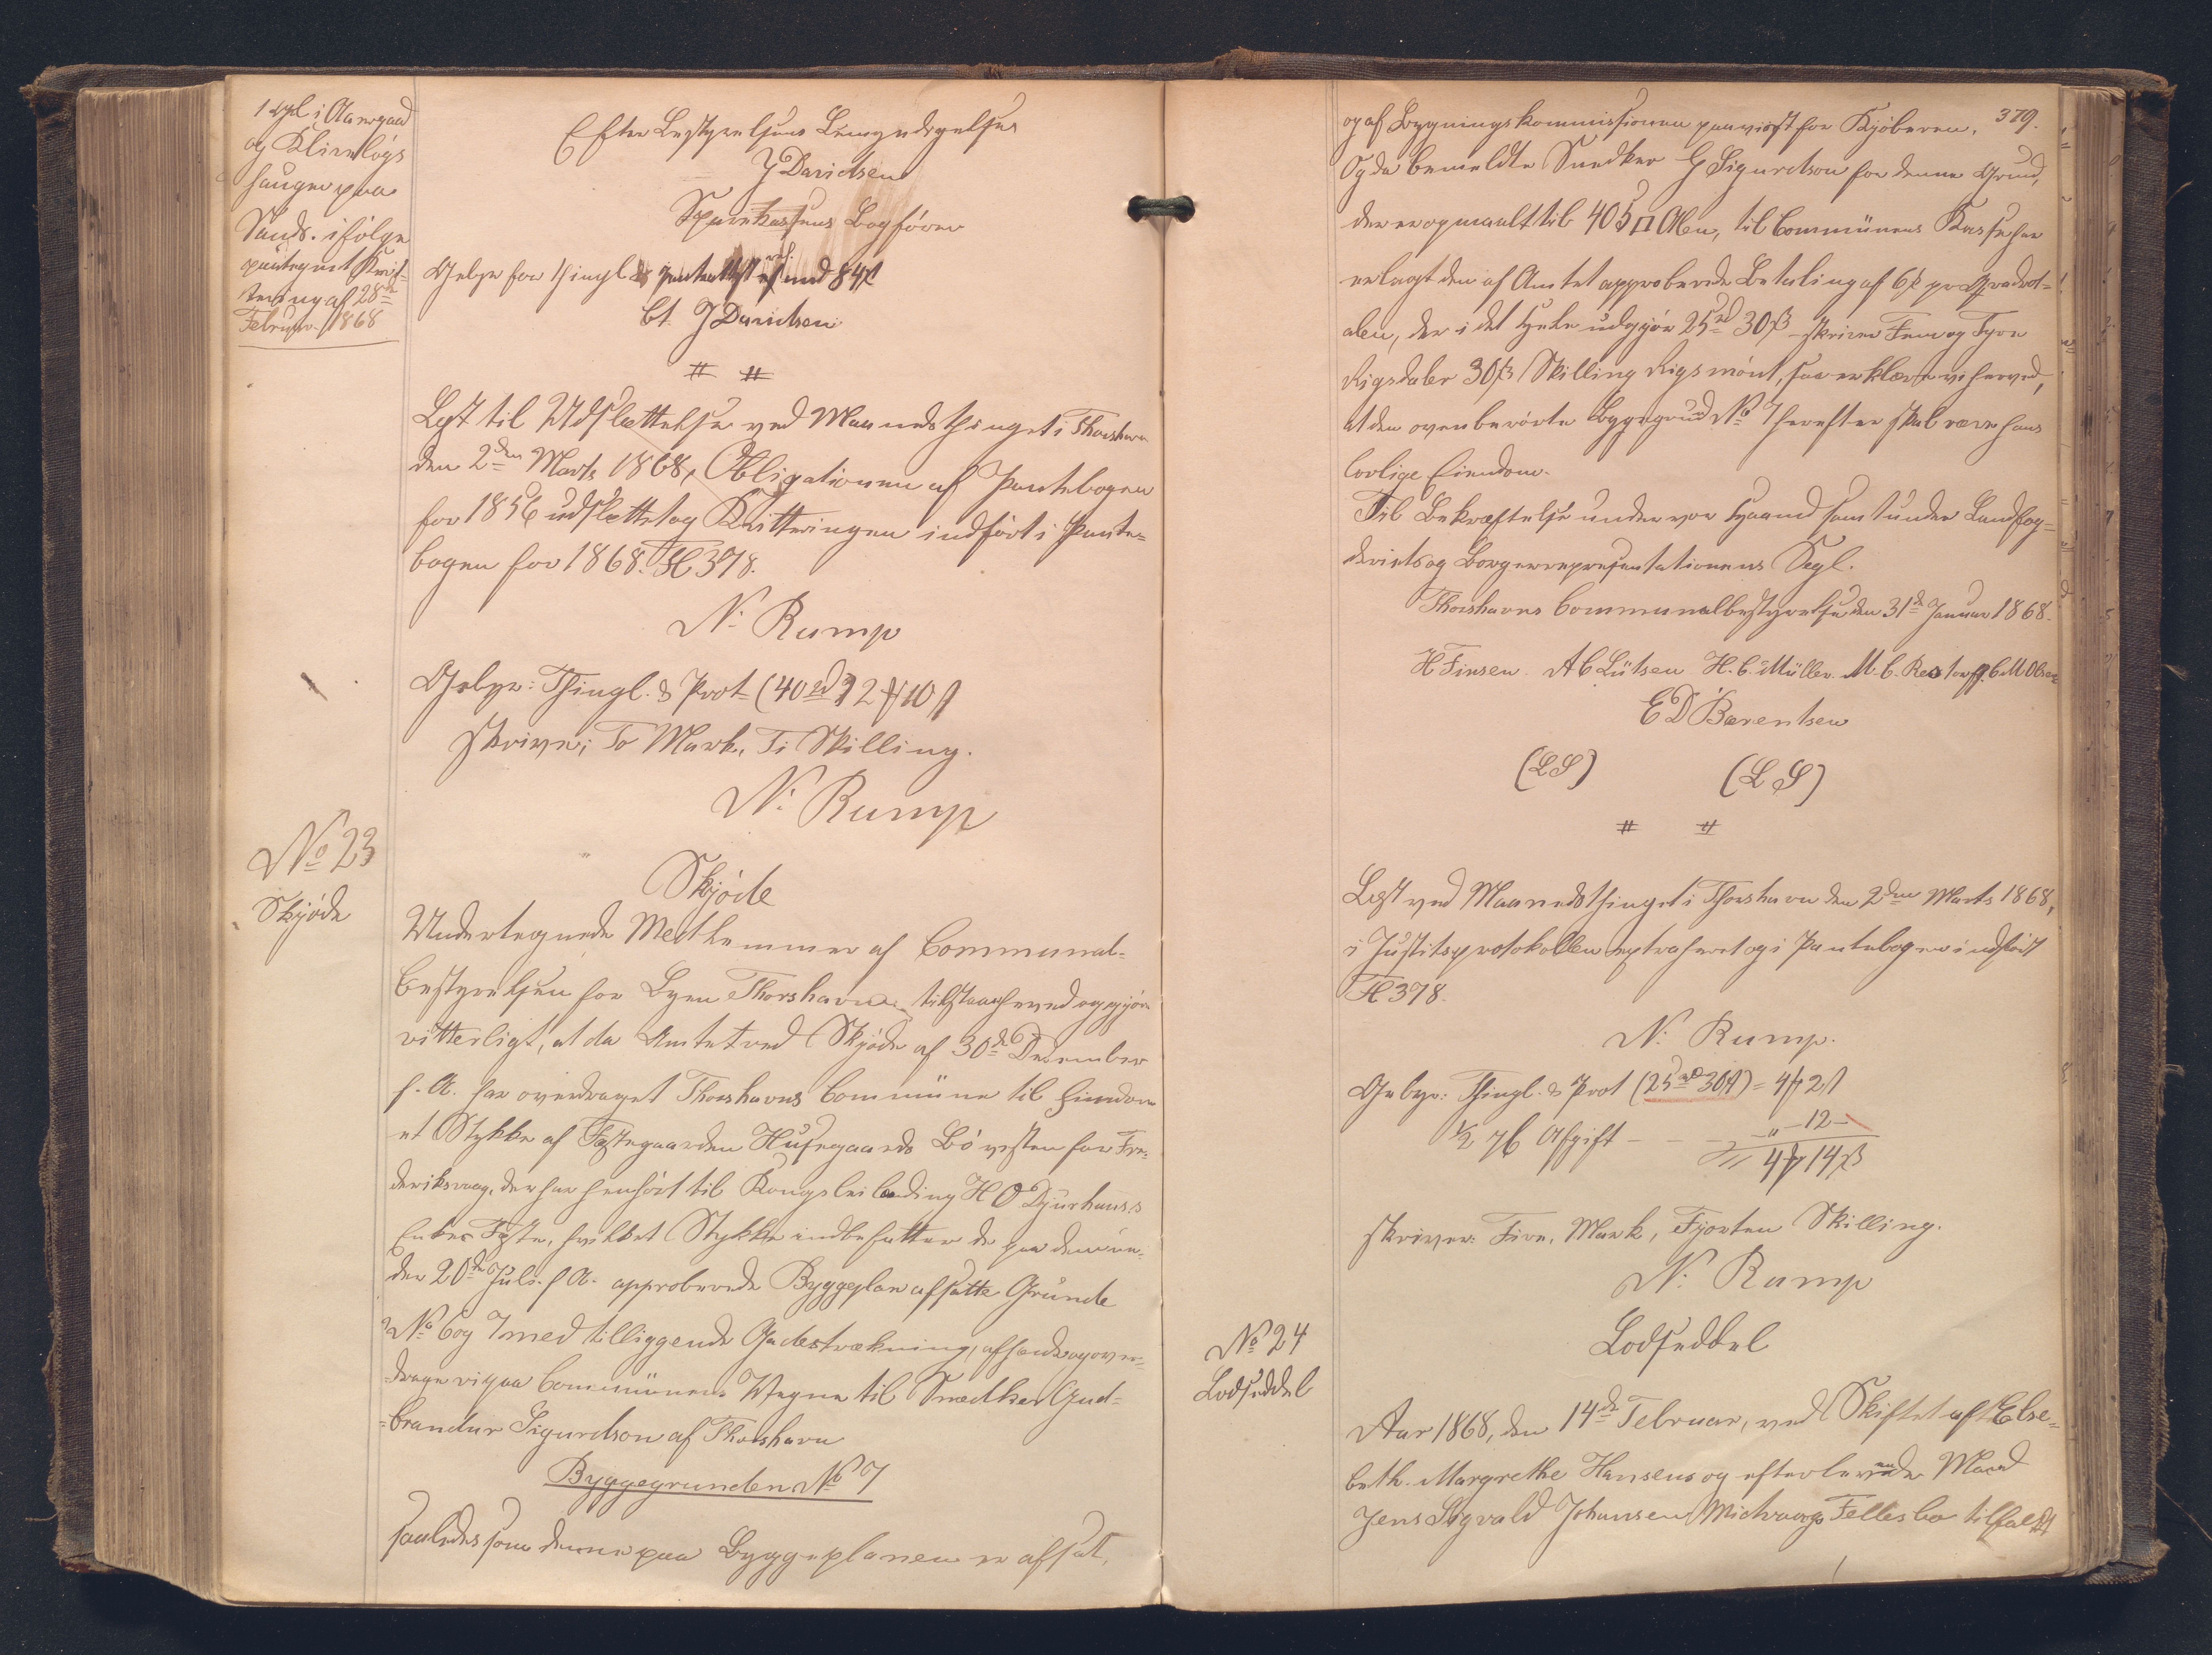 1 Gl i Aaregaard
og Klivaløgs
haugen paa
Sands. ifølge
paategnet Kvit-
tering af 28de
Februar 1868
Efter Bestyrelsens Bemyndigelse
J Davidsen
Sparekassens Bogfører
Gebyr for Thingl. & med 84 ß
Ct. J Davidsen
# #
Læst til Udslettelse ved Maanedsthinget i Thorshavn
den 2den Marts 1868, Obligationen af Pantebogen
for 1856 udslettet og Kvitteringen indført i Pante-
bogen for 1868. Fl 378.
N. Rump
Gebyr: Thingl. & Prot (40 rd) 2 ℔ 10 ß
skriver; To Mark, Ti Skilling.
N. Rump
No 23
Skjøde
Skjöde
Undertegnede Medlemmer af Communal-
bestyrelsen for Byen Thorshavn tilstaae herved og gjøre
vitterligt, at da Amtet ved Skjøde af 30de December
f. A. har overdraget Thorshavns Commüne til Eiendom
et Stykke af Fæstegaarden Húsegaards Bö vesten for Fre-
deriksvaag, der har henhørt til Kongsleilænding H O Djurhuus's
Enkes Fæste, hvilket Stykke indbefatter de paa den un-
der 20de Juli f. A. approberede Byggeplan afsatte Grunde
No 6 og 7 med tilliggende Gadestrækning, afhænde og over-
drage vi paa Commünens Vegne til Snedker Gud-
=brandur Sigurdson af Thorshavn
Byggegrunden No 7
saaledes som denne paa Byggeplanen er afsat,
379.
og af Bygningskommissionen paaviist for Kjøberen.
Og da bemeldte Snedker G Sigurdson for denne Grund,
der er opmaalt til 405 □ Alen, til Commünens Kasse har
erlagt den af Amtet approberede Betaling af 6 ß pr Qvadrat-
alen, der i det Hele udgjør 25 rd 30 ß skriver Fem og Tyve
Rigsdaler 30 ß Skilling Rigsmønt, saa erklære vi herved,
at den ovenberørte Byggegrund No 7 herefter skal være hans
lovlige Eiendom.
Til Bekræftelse under vor Haand samt under Landfog-
deriets og Borgerrepræsentationens Segl.
Thorshavns Communalbestyrelse den 31de Januar 1868.
H Finsen. A C Lützen H. C. Müller. M. C. Restorff. C M Olsen
E D Bærentsen
(L S) (L S)
# #
Læst ved Maanedsthinget i Thorshavn den 2den Marts 1868,
i Justitsprotokollen extraheret og i Pantebogen indført
Fl 378.
N. Rump.
Gebyr: Thingl. & Prot (25 rd 30 ß) = 4 ℔ 2 ß
½ % Afgift - - - - " - 12 -
= 4 ℔ 14 ß
skriver: Fire, Mark, Fjorten Skilling.
N. Rump
No 24
Lodseddel
Lodseddel
Aar 1868, den 14de Februar, ved Skiftet efter Else-
beth. Margrethe Hansens og efterlevende Mand
Jens Sigvald Johansen Midtvaags Fellesbo tilfaldt